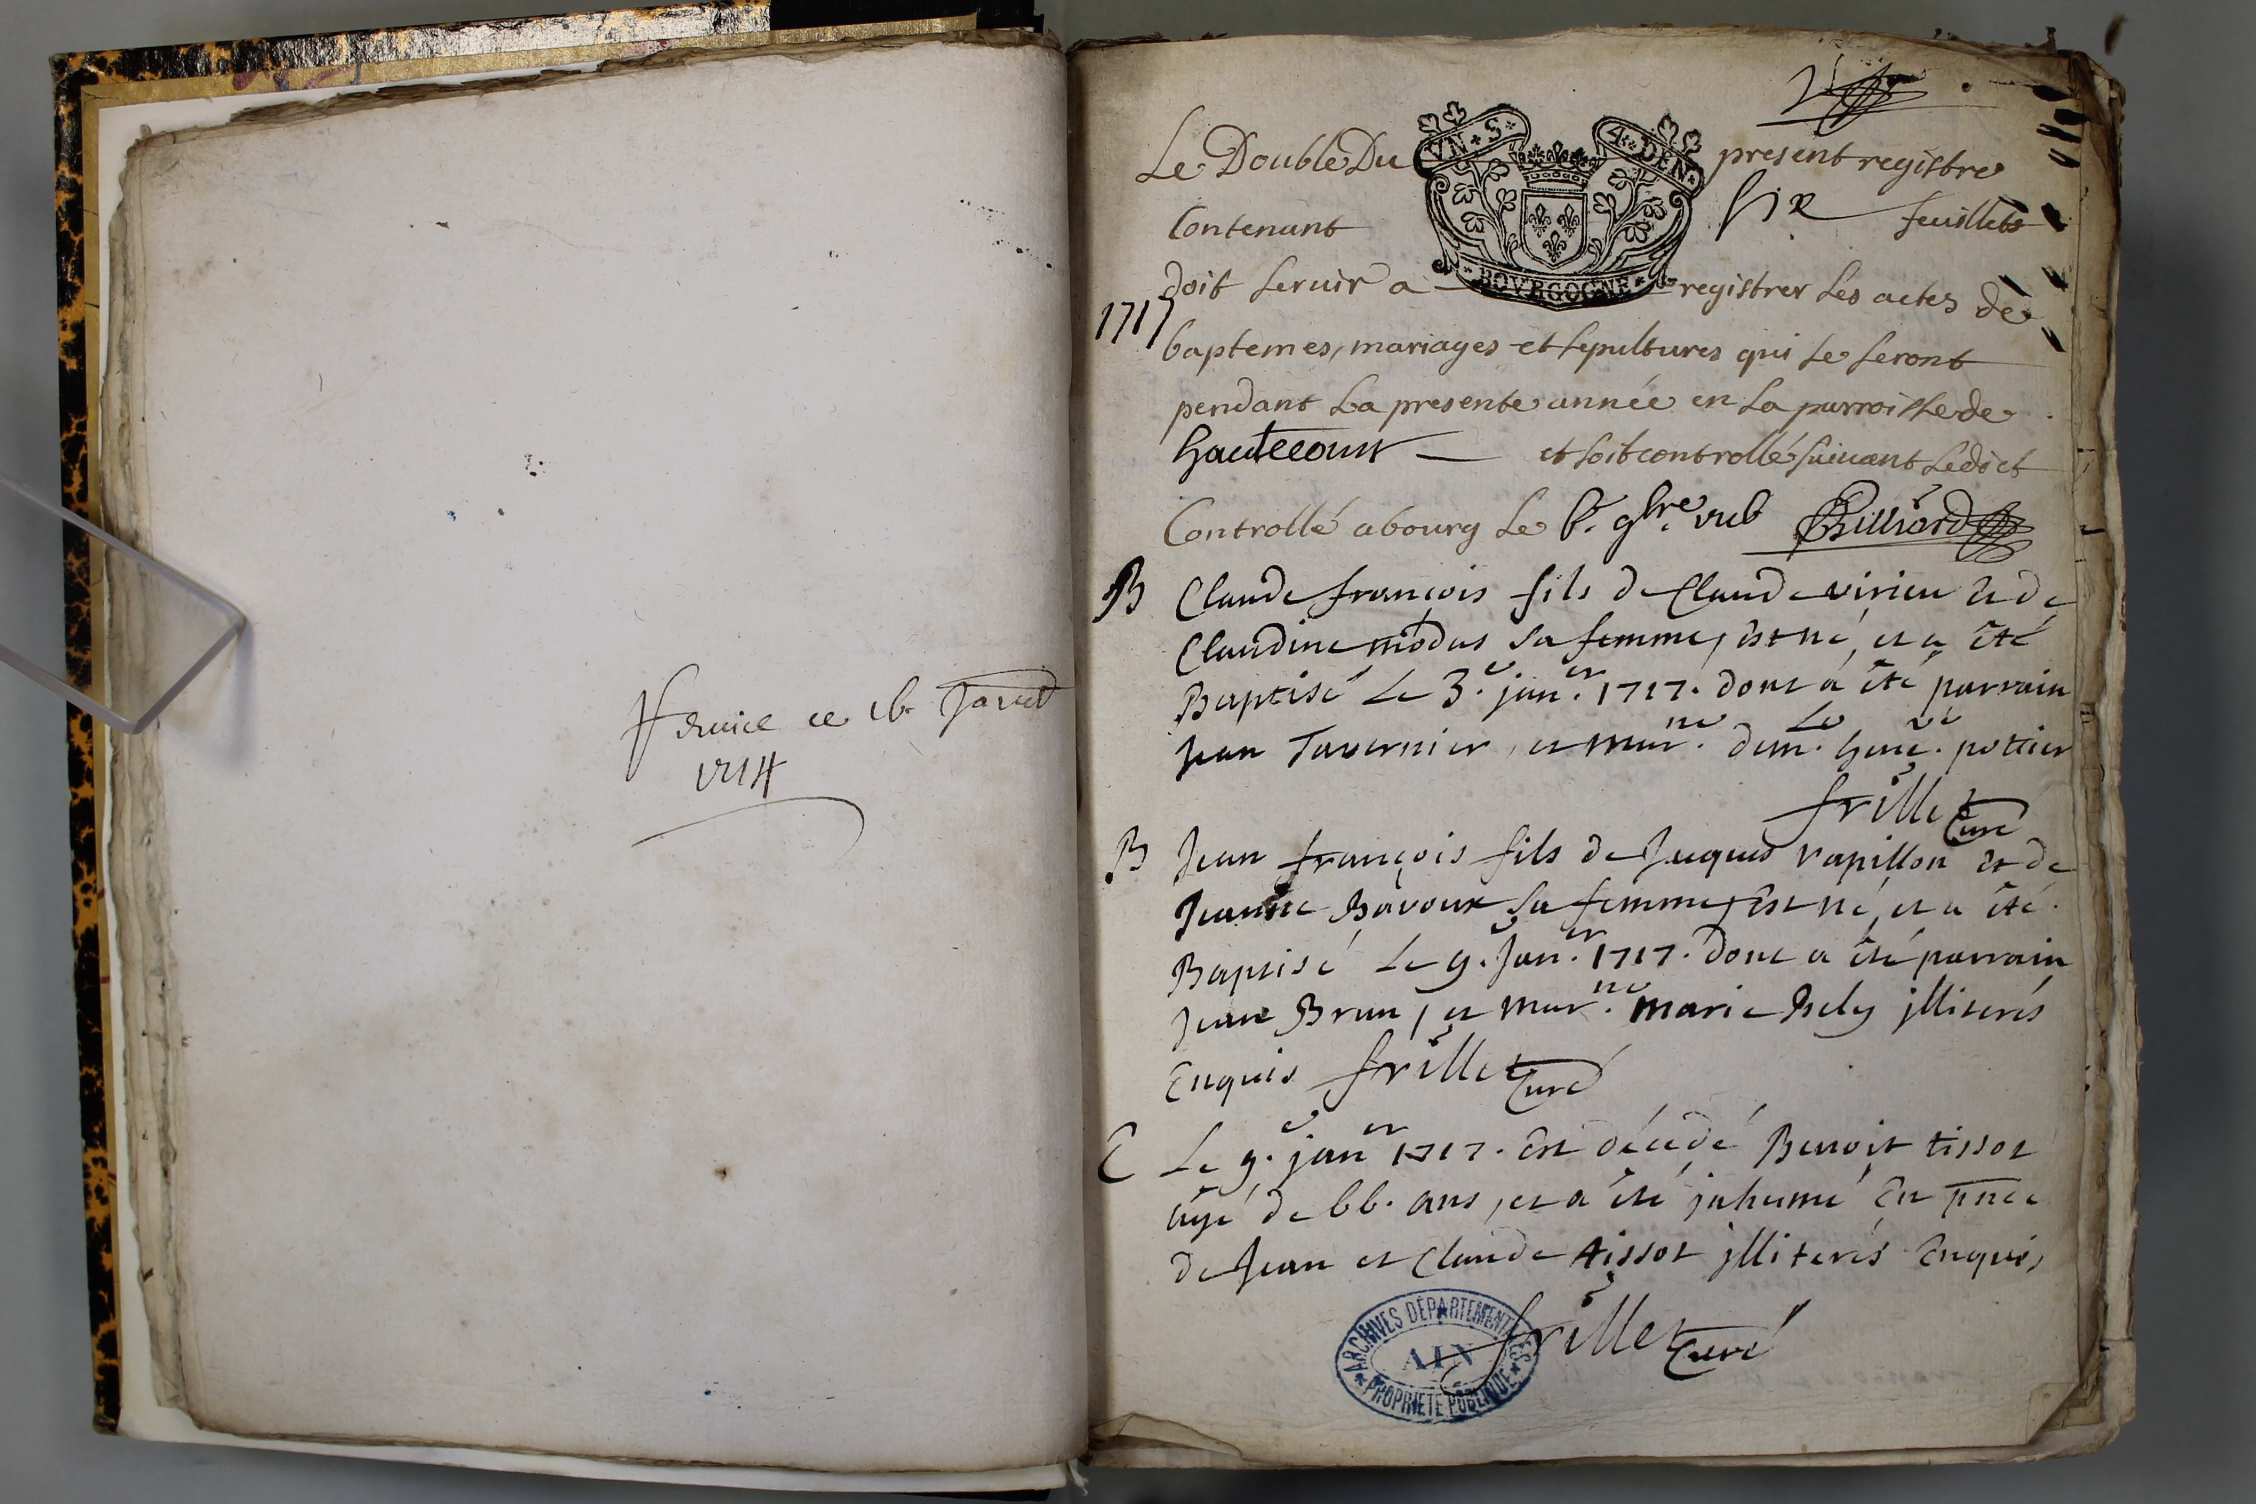 ce 16 Janv
1714
Le Double Du present registre
VN S
4 DEN
Contenant six feuillets
doit servir a registrer les actes de
BOVRGOGNE
1717
baptemes, mariages et sepultures qui se feront
pendant La presente année en La parroisse de
hautecourt et soit controllé suivant Ledict
Controllé a bourg Le 6e 9bre Billiord
B Claude françois fils de Claude virieu et de
Claudine sa femme, est né, et a été
Baptisé Le 3.e jan.er 1717. dont a été parrain
jean Tavernier, et mar.ne dem.le pottier
frillet Curé
B Jean françois fils de Jaques rapillon et de
Jeanne Bavoux sa femme, est né, et a été
Baptisé Le 9.e Jan.er 1717. dont a été parrain
Jean Brun, et mar.ne marie Bely jlliterés
enquis frillet Curé
C Le 9.e jan.er 1717. est décédé Benoit tissot
agé de 66. ans, et a été jnhumé en pnce
de Jean et Claude tissot jlliterés enquis,
frillet Curé
ARCHIVES DÉPARTEMENTALES
AIN
PROPRIÉTÉ PUBLIQUE